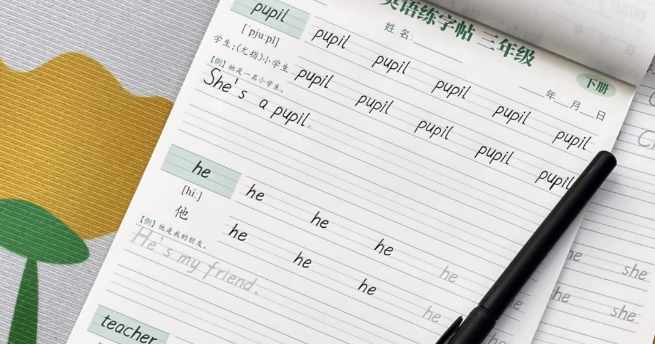 英语练字帖 三年级
下册
姓名:
年 月 日
pupil
['pjuːpl]
学生;(尤指)小学生
【例】她是一名小学生。
pupil pupil pupil pupil pupil
pupil pupil pupil pupil pupil
She's a pupil.
he
[hiː]
他
【例】他是我的朋友。
he he he he
he he he he
He's my friend.
teacher
he she
he she